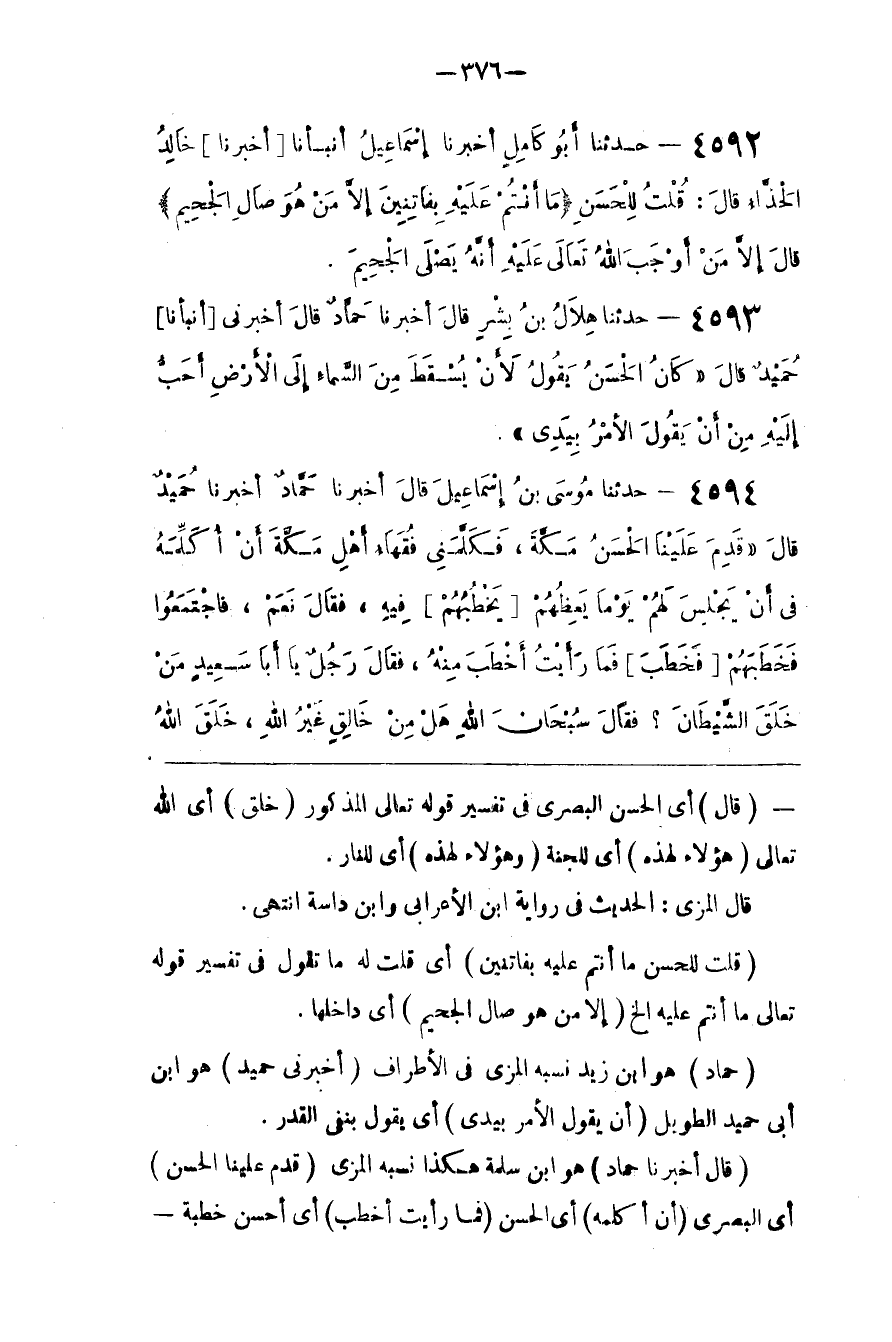 —٣٧٦—
٤٥٩٢ — حدثنا أَبُو كَامِلٍ أخبرنا إِسْمَاعِيلُ أنبأنا [ أخبرنا ] خَالِدُ
الْحَذَّاءِ قالَ : قُلْتُ لِلْحَسَنِ ﴿مَا أَنْتُمْ عَلَيْهِ بِفَاتِنِينَ إِلاَّ مَنْ هُوَ صَالِ الْجَحِيمِ﴾
قالَ إِلاَّ مَنْ أَوْجَبَ اللهُ تَعَالَى عَلَيْهِ أَنَّهُ يَصْلَى الْجَحِيمَ .
٤٥٩٣ — حدثنا هِلاَلُ بنُ بِشْرٍ قالَ أخبرنا حَمَّادٌ قالَ أخبرنى [أنبأنا]
حُمَيْدٌ قالَ « كَانَ الْحَسَنُ يَقُولُ لَأَنْ يُسْقَطَ مِنَ السَّمَاءِ إِلَى الْأَرْضِ أَحَبُّ
إِلَيْهِ مِنْ أَنْ يَقُولَ الأَمْرُ بِيَدِى » .
٤٥٩٤ — حدثنا مُوسَى بنُ إِسْمَاعِيلَ قالَ أخبرنا حَمَّادٌ أخبرنا حُمَيْدٌ
قالَ « قَدِمَ عَلَيْنَا الْحَسَنُ مَكَّةَ ، فَكَلَّمَنِى فُقَهَاءِ أَهْلِ مَكَّةَ أَنْ أُكَلِّمَهُ
فى أَنْ يَجْلِسَ لَهُمْ يَوْماً يَعِظُهُمْ [ يَخْطُبُهُمْ ] فِيهِ ، فقالَ نَعَمْ ، فاجْتَمَعُوا
فَخَطَبَهُمْ [ فَخَطَبَ ] فَمَا رَأَيْتُ أَخْطَبَ مِنْهُ ، فقالَ رَجُلٌ يا أَبَا سَعِيدٍ مَنْ
خَلَقَ الشَّيْطَانَ ؟ فقالَ سُبْحَانَ اللهِ هَلْ مِنْ خَالِقٍ غَيْرُ اللهِ ، خَلَقَ اللهُ
— ( قال ) أى الحسن البصرى فى تفسير قوله تعالى المذكور ( خلق ) أى الله
تعالى ( هؤلاء لهذه ) أى للجنة ( وهؤلاء لهذه ) أى للنار .
قال المزى : الحديث فى رواية ابن الأعرابى وابن داسة انتهى .
( قلت للحسن ما أنتم عليه بفاتنين ) أى قلت له ما تقول فى تفسير قوله
تعالى ما أنتم عليه الخ ( إلا من هو صال الجحيم ) أى داخلها .
( حماد ) هو ابن زيد نسبه المزى فى الأطراف ( أخبرنى حميد ) هو ابن
أبى حميد الطويل ( أن يقول الأمر بيدى ) أى يقول بنفى القدر .
( قال أخبرنا حماد ) هو ابن سلمة هكذا نسبه المزى ( قدم علينا الحسن )
أى البصرى ( أن أكلمه ) أى الحسن ( فما رأيت أخطب ) أى أحسن خطبة —